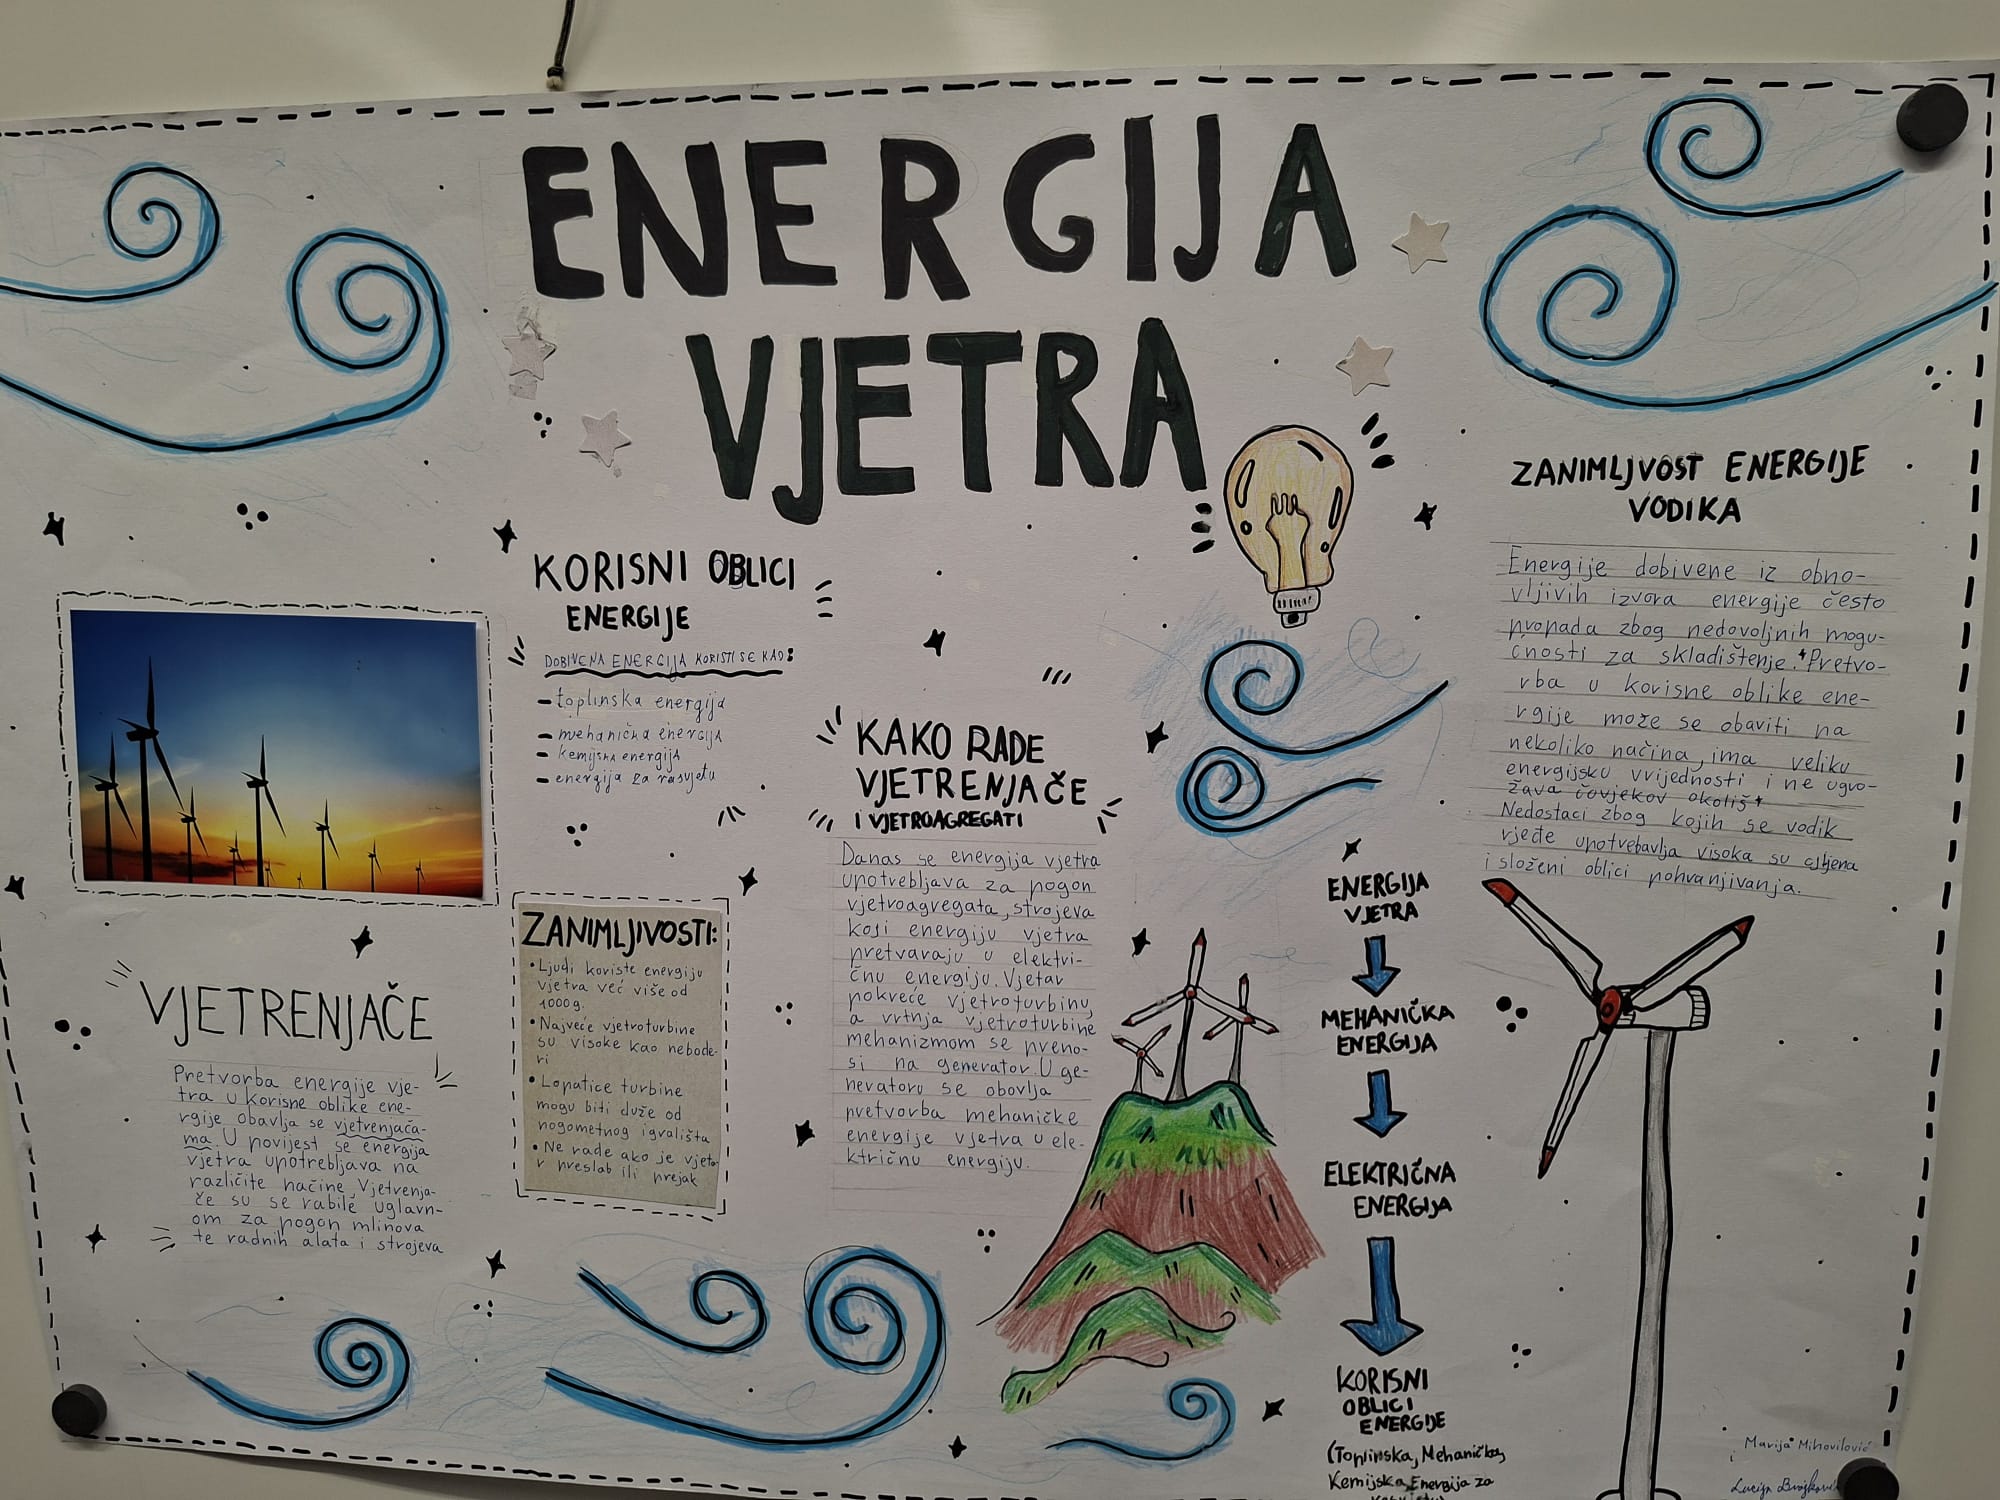 ENERGIJA
VJETRA
KORISNI OBLICI
ENERGIJE
DOBIVENA ENERGIJA KORISTI SE KAO:
- toplinska energija
- mehanička energija
- kemijska energija
- energija za rasvjetu
VJETRENJAČE
Pretvorba energije vje-
tra u korisne oblike ene-
rgije obavlja se vjetrenjača-
ma. U povijest se energija
vjetra upotrebljava na
različite načine. Vjetrenja-
če su se rabile uglavn-
om za pogon mlinova
te radnih alata i strojeva
ZANIMLJIVOSTI:
• Ljudi koriste energiju
vjetra već više od
1000g.
• Najveće vjetroturbine
su visoke kao nebode-
ri
• Lopatice turbine
mogu biti duže od
nogometnog igrališta
• Ne rade ako je vjeta
r preslab ili prejak
KAKO RADE
VJETRENJAČE
I VJETROAGREGATI
Danas se energija vjetra
upotrebljava za pogon
vjetroagregata, strojeva
koji energiju vjetra
pretvaraju u elektri-
čnu energiju. Vjetar
pokreće vjetroturbinu,
a vrtnja vjetroturbine
mehanizmom se preno-
si na generator. U ge-
neratoru se obovlja
pretvorba mehaničke
energije vjetra u ele-
ktričnu energiju.
ENERGIJA
VJETRA
MEHANIČKA
ENERGIJA
ELEKTRIČNA
ENERGIJA
KORISNI
OBLICI
ENERGIJE
(Toplinska, Mehanička,
Kemijska, Energija za
ZANIMLJVOST ENERGIJE
VODIKA
Energije dobivene iz obno-
vljivih izvora energije često
propada zbog nedovoljnih mogu-
ćnosti za skladištenje. Pretvo-
rba u korisne oblike ene-
rgije može se obaviti na
nekoliko načina, ima veliku
energijsku vrijednosti i ne ugro-
žava čovjekov okoliš
Nedostaci zbog kojih se vodik
rjeđe upotrebavlja visoka su cijena
i složeni oblici pohranjivanja.
Marija Mihovilović
Lucija